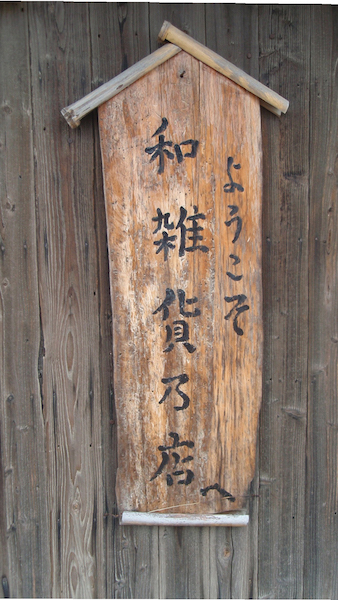 ようこそ
和雑貨乃店へ